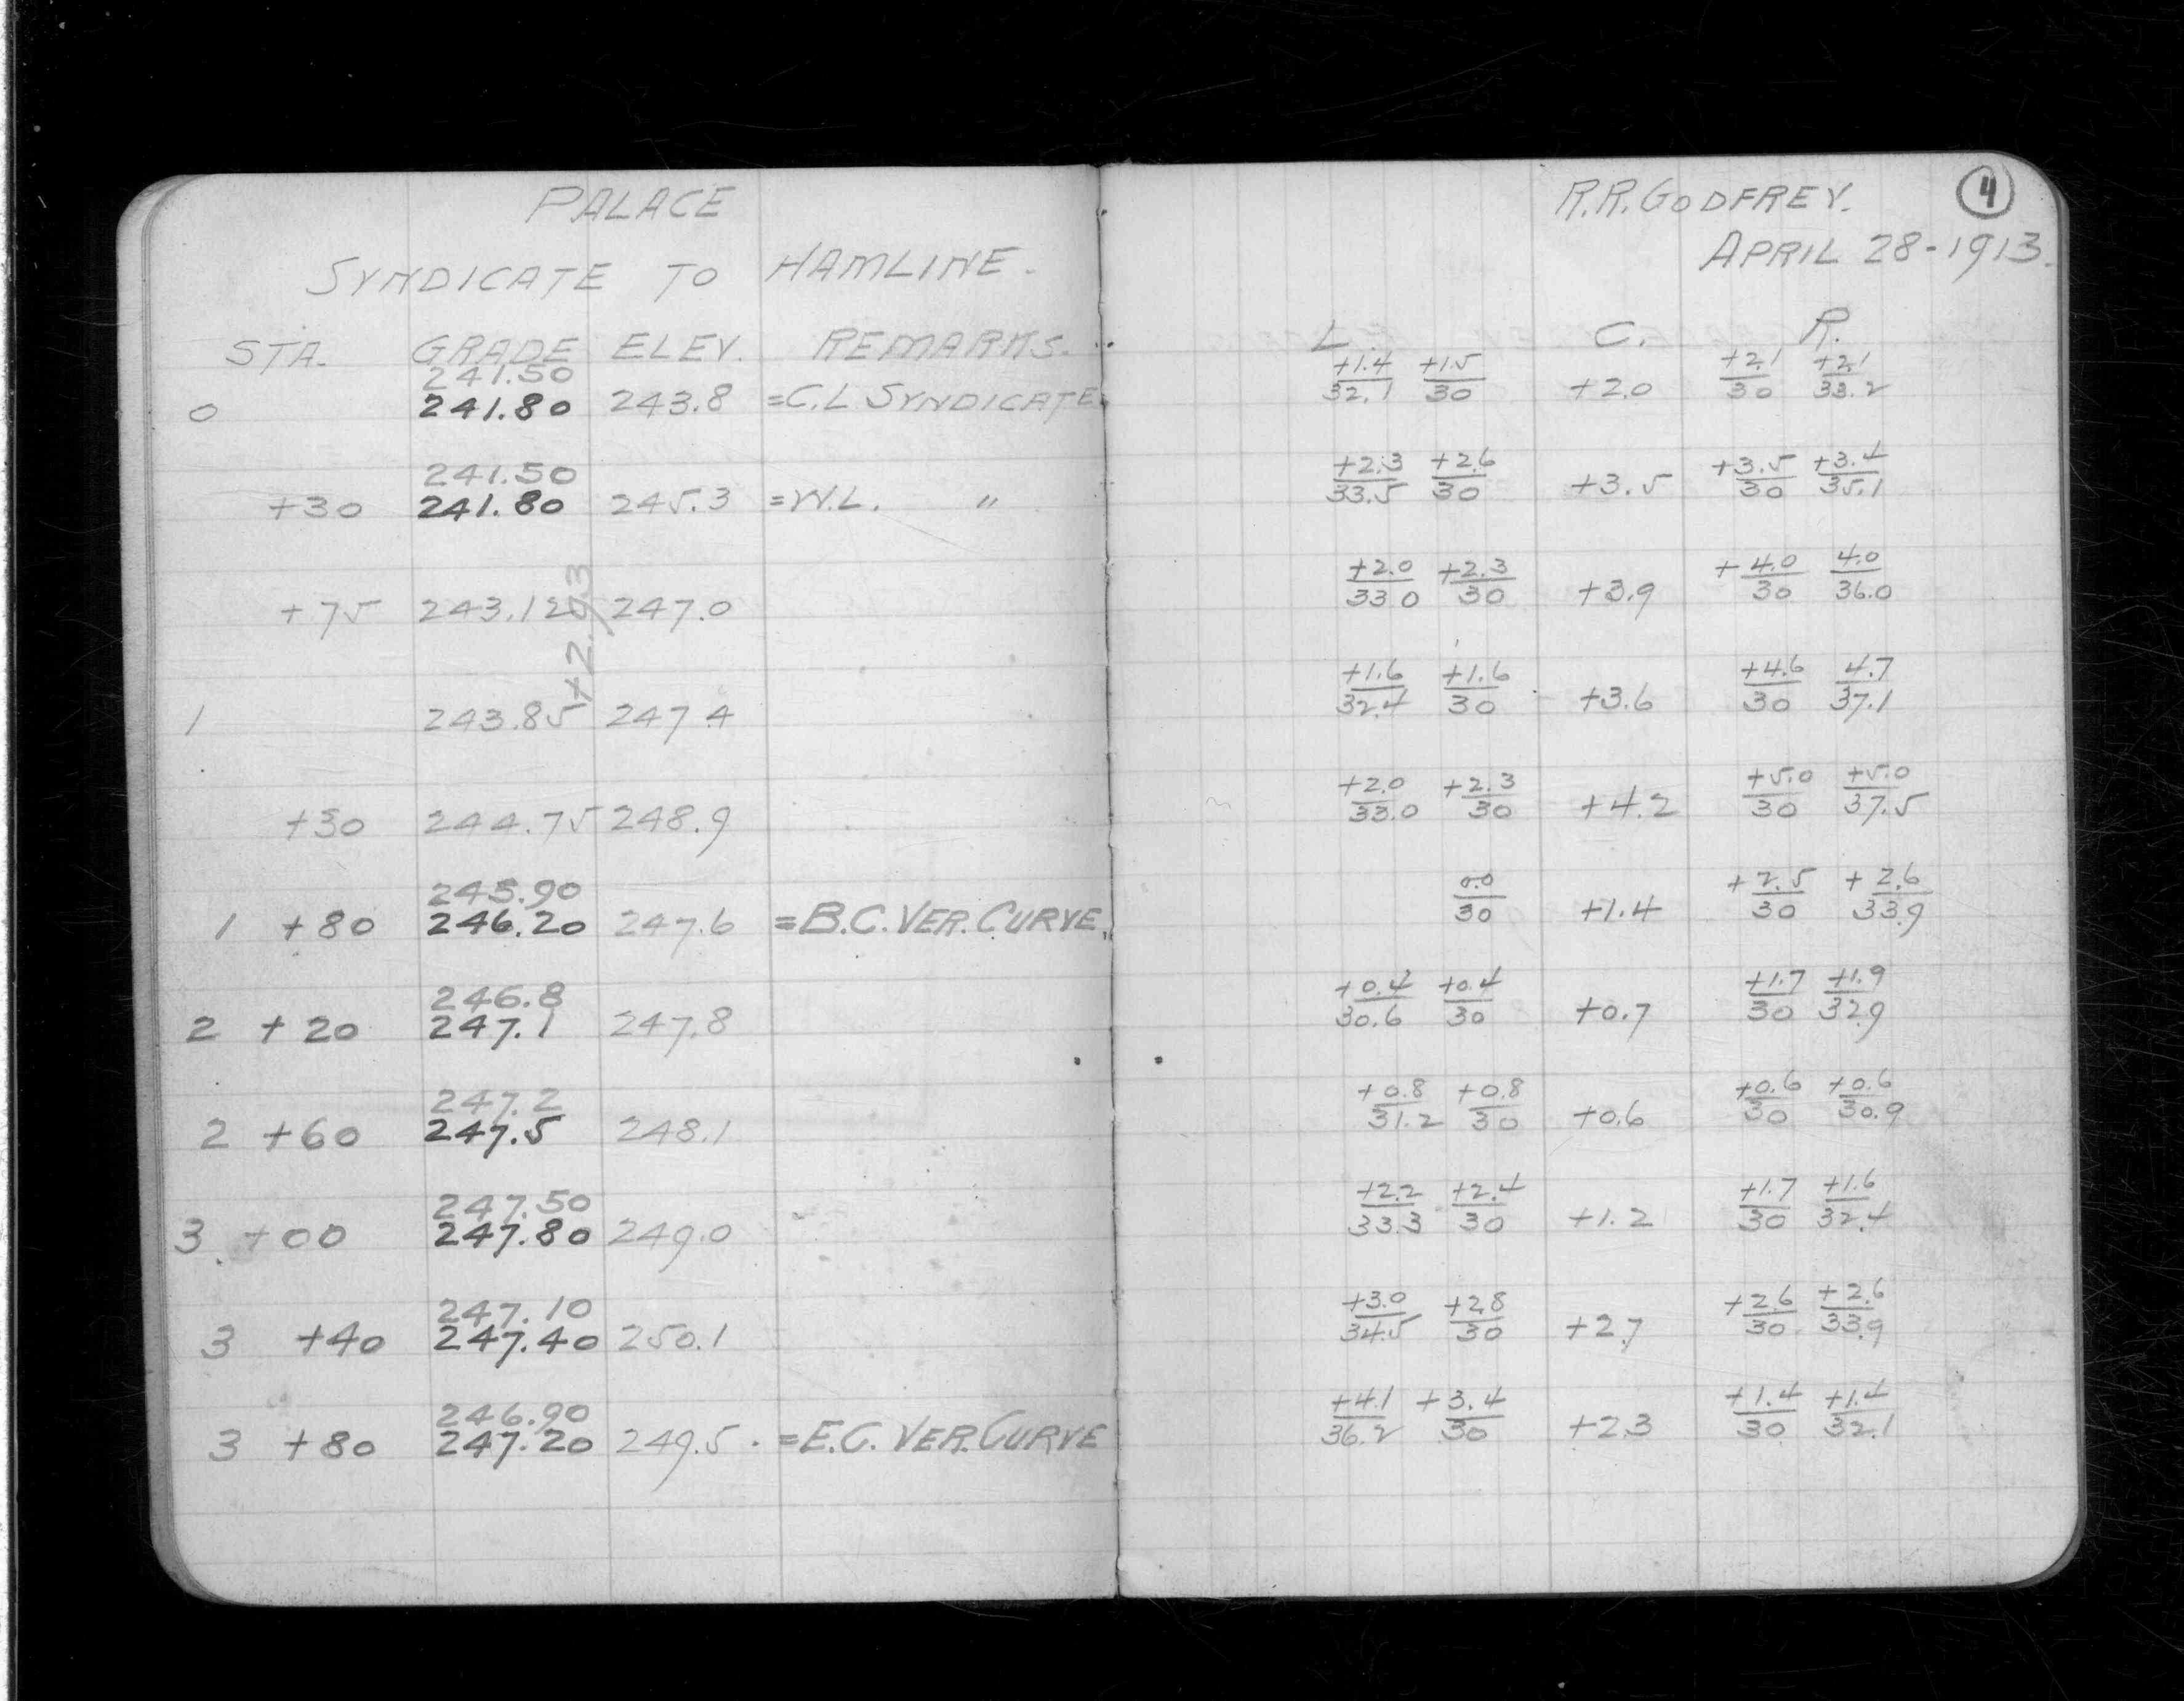 PALACE
SYNDICATE TO HAMLINE.
STA. GRADE ELEV. REMARKS.
241.50
0 241.80 243.8 =C.L SYNDICATE
241.50
+30 241.80 245.3 =W.L. "
+75 243.12 247.0
+2.93
1 243.85 247.4
+30 244.75 248.9
245.90
1 +80 246.20 247.6 =B.C. VER. CURVE.
246.8
2 +20 247.1 247.8
247.2
2 +60 247.5 248.1
247.50
3 +00 247.80 249.0
247.10
3 +40 247.40 250.1
246.90
3 +80 247.20 249.5 =E.C. VER. CURVE
R.R. GODFREY. 4
APRIL 28-1913.
L. C. R.
+1.4 +1.5 +2.1 +2.1
32.1 30 +2.0 30 33.2
+2.3 +2.6 +3.5 +3.4
33.5 30 +3.5 30 35.1
+2.0 +2.3 +4.0 4.0
33.0 30 +3.9 30 36.0
+1.6 +1.6 +4.6 4.7
32.4 30 +3.6 30 37.1
+2.0 +2.3 +5.0 +5.0
33.0 30 +4.2 30 37.5
0.0 +2.5 +2.6
30 +1.4 30 33.9
+0.4 +0.4 +1.7 +1.9
30.6 30 +0.7 30 32.9
+0.8 +0.8 +0.6 +0.6
31.2 30 +0.6 30 30.9
+2.2 +2.4 +1.7 +1.6
33.3 30 +1.2 30 32.4
+3.0 +2.8 +2.6 +2.6
34.5 30 +2.7 30 33.9
+4.1 +3.4 +1.4 +1.4
36.2 30 +2.3 30 32.1